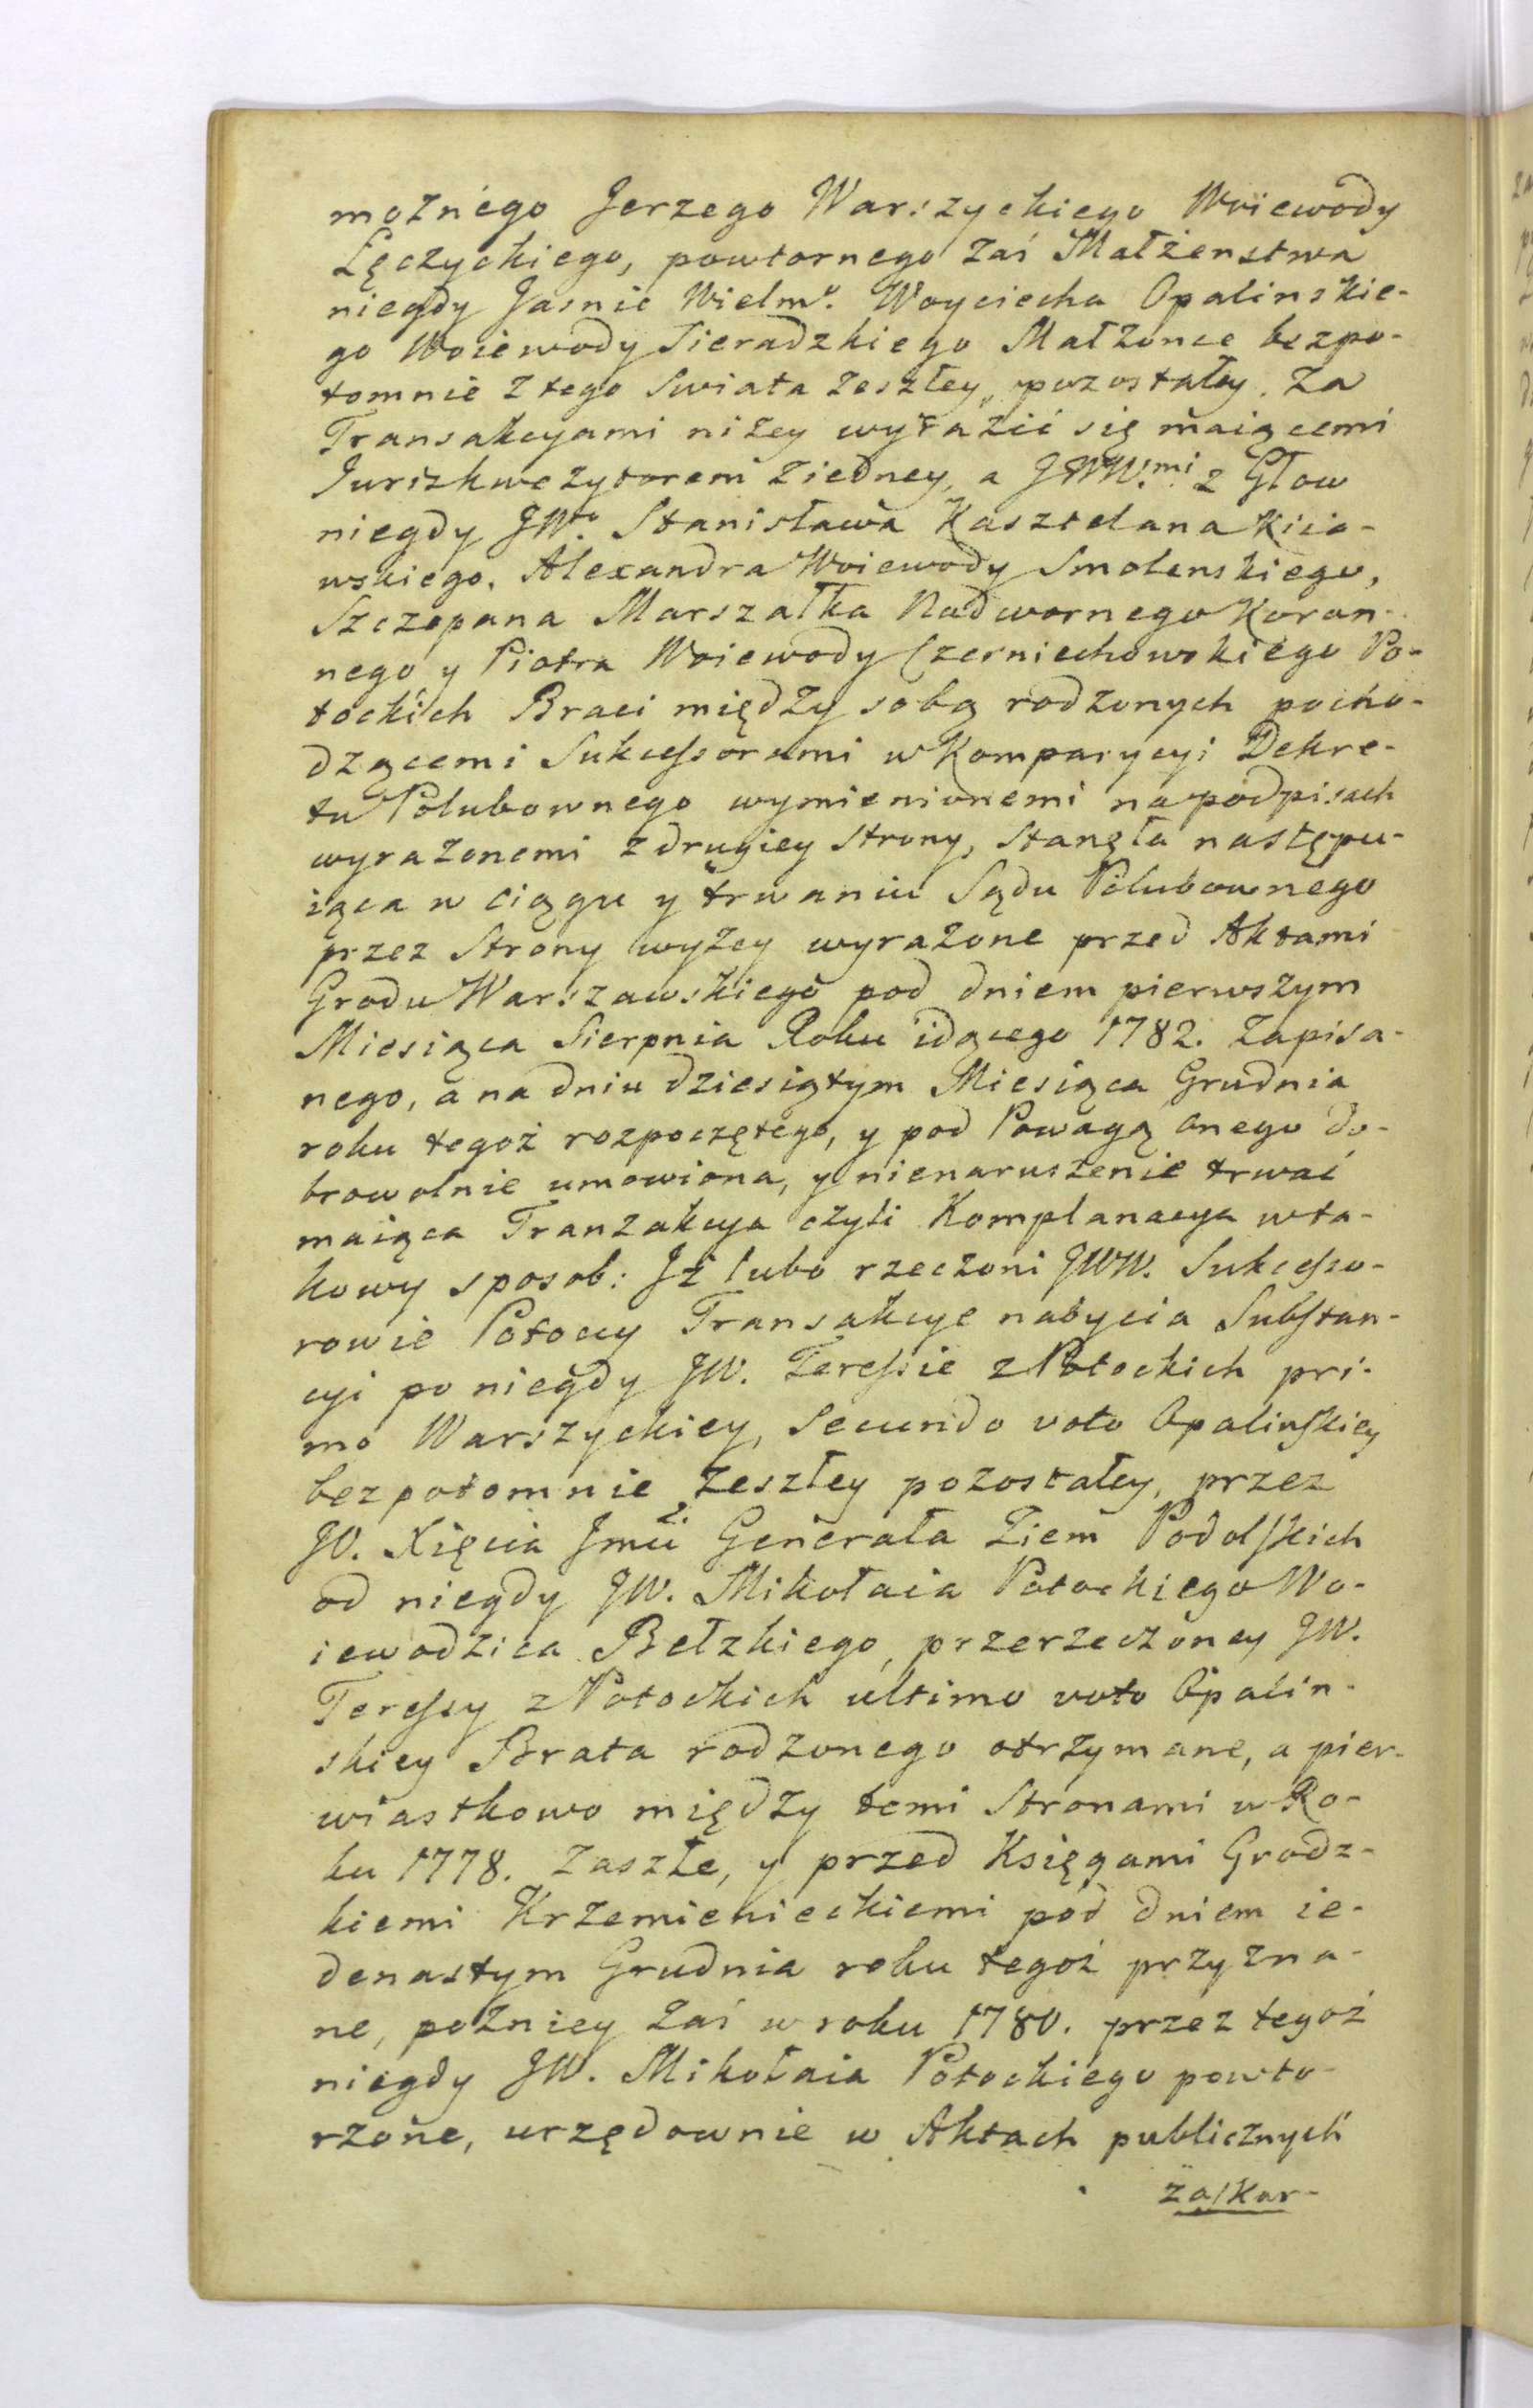 moznego Jerzego Warszyckiego Woiewody
Lęczyckiego, powtornego zaś Małżenstwa
niegdy Jasnie Wielmo. Woyciecha Opalinskie-
go Woiewody Sieradzkiego Małżonce bezpo-
tomnie z tego Swiata zeszłey, pozostałey. Za
Transakcyami niżey wyrazić się maiącemi
Juriskwezytorem ziedney, a JWW.mi z Głow
niegdy JWo. Stanisława Kasztelana Kiio-
wskiego, Alexandra Woiewody Smolenskiego,
Szczepana Marszałka Nadwornego Koron-
nego y Piotra Woiewody Czerniechowskiego Po-
tockich Braci między sobą rodzonych pocho-
dzącemi Sukcessorami w Komparycyi Dekre-
tu Polubownego wymienionemi na podpisach
wyrazonemi z drugiey Strony, Stanęła następu-
iąca w ciągu y trwaniu Sądu Polubownego
przez Strony wyżey wyrażone przed Aktami
Grodu Warszawskiego pod dniem pierwszym
Miesiąca Sierpnia Roku idącego 1782. Zapisa-
nego, a na dniu dziesiątym Miesiąca Grudnia
roku tegoż rozpoczętego, y pod Powagą onego do-
browolnie umowiona, y nienaruszenie trwać
maiąca Tranzakcya czyli Komplanacya wta-
kowy sposob: Iż lubo rzeczoni JWW. Sukcesso-
rowie Potoccy Transakcye nabycia Substan-
cyi po niegdy JW. Teressie z Potockich pri-
mo Warszyckiey, Secundo voto Opalinskiey
bezpotomnie zeszłey pozostałey, przez
JO. Xięcia Jmci Generała Ziem Podolskich
od niegdy JW. Mikołaia Potockiego Wo-
iewodzica Bełzkiego, przerzeczoney JW.
Teressy z Potockich ultimo voto Opalin-
skiey Brata rodzonego otrzymane, a pier-
wiastkowo między temi Stronami w Ro-
ku 1778. Zaszłe, y przed Księgami Grodz-
kiemi Krzemienieckiemi pod dniem ie-
denastym Grudnia roku tegoż przyzna-
ne, pozniey zaś w roku 1780. przez tegoż
niegdy JW. Mikołaia Potockiego powto-
rzone, urzędownie w Aktach publicznych
zaskar-